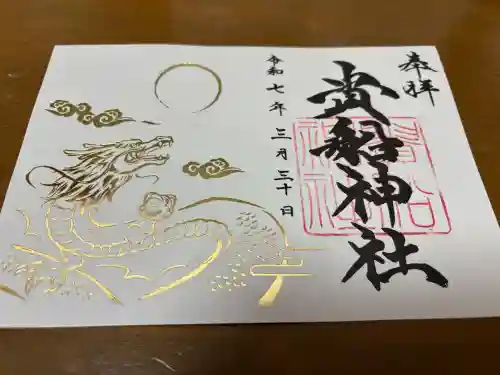 奉拝
貴船神社
令和七年三月三十日